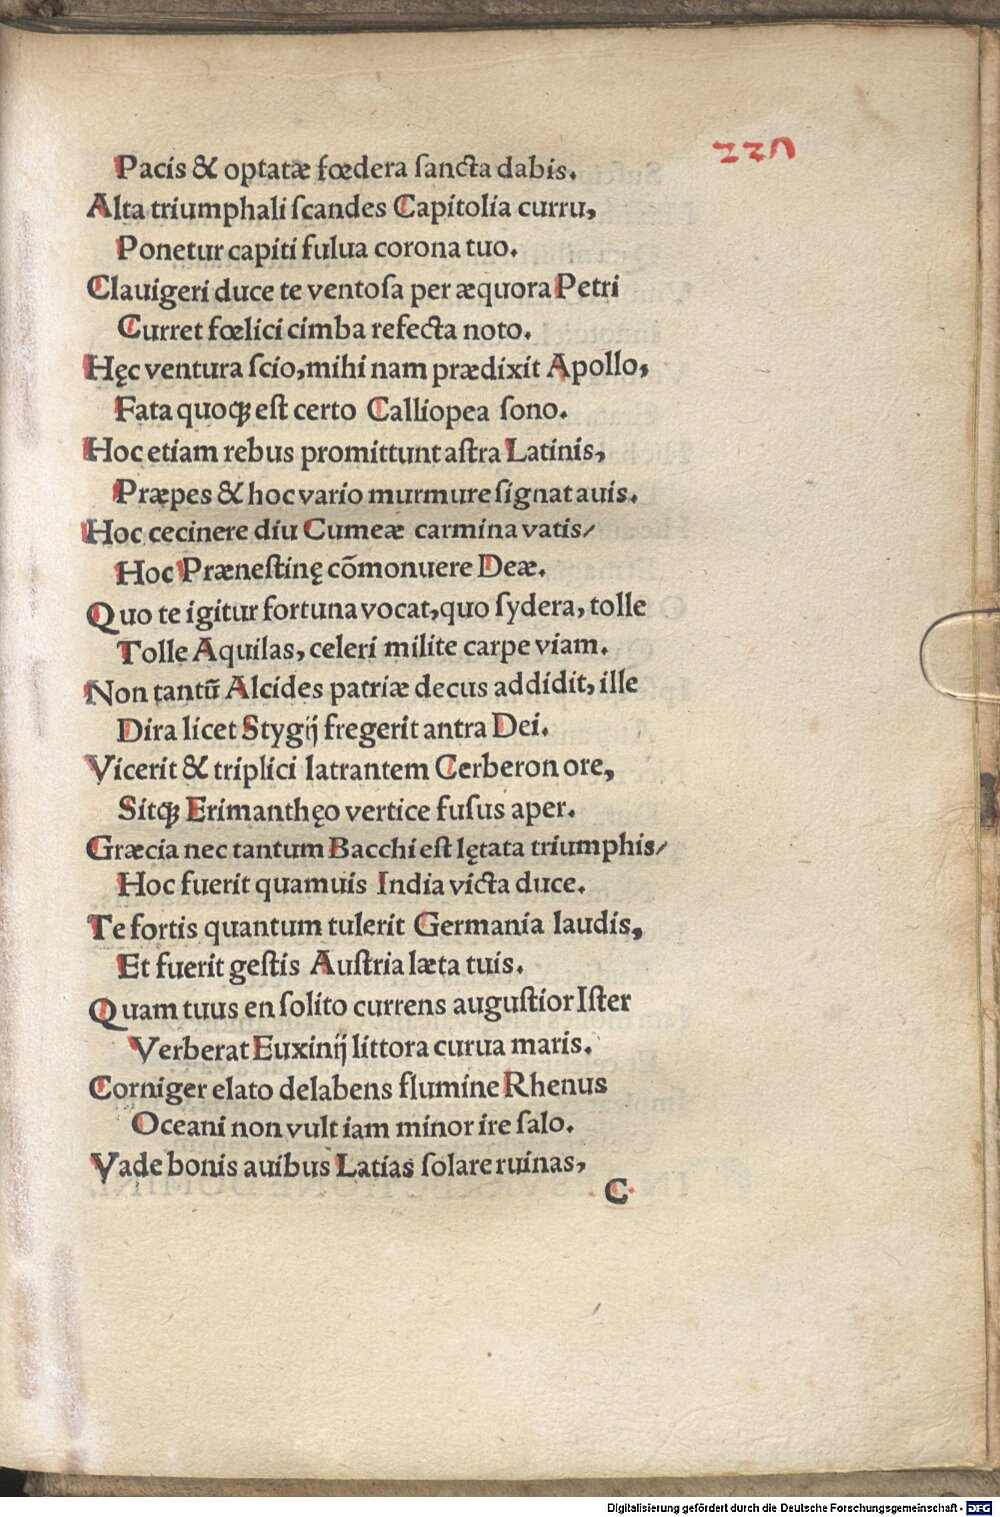 220
Pacis & optatæ fœdera ſancta dabis.
Alta triumphali ſcandes Capitolia curru,
Ponetur capiti fulua corona tuo.
Clauigeri duce te ventoſa per æquora Petri
Curret fœlici cimba refecta noto.
Hęc ventura ſcio, mihi nam prædixit Apollo,
Fata quoqꝫ eſt certo Calliopea ſono.
Hoc etiam rebus promittunt aſtra Latinis,
Præpes & hoc vario murmure ſignat auis.
Hoc cecinere diu Cumeæ carmina vatis/
Hoc Præneſtinę cōmonuere Deæ.
Quo te igitur fortuna vocat, quo ſydera, tolle
Tolle Aquilas, celeri milite carpe viam.
Non tantū Alcides patriæ decus addidit, ille
Dira licet Stygij fregerit antra Dei.
Vicerit & triplici latrantem Cerberon ore,
Sitqꝫ Erimanthęo vertice fuſus aper.
Græcia nec tantum Bacchi eſt lętata triumphis/
Hoc fuerit quamuis India victa duce.
Te fortis quantum tulerit Germania laudis,
Et fuerit geſtis Auſtria læta tuis.
Quam tuus en ſolito currens auguſtior Iſter
Verberat Euxinij littora curua maris.
Corniger elato delabens flumine Rhenus
Oceani non vult iam minor ire ſalo.
Vade bonis auibus Latias ſolare ruinas,
C
Digitalisierung gefördert durch die Deutsche Forschungsgemeinschaft - DFG